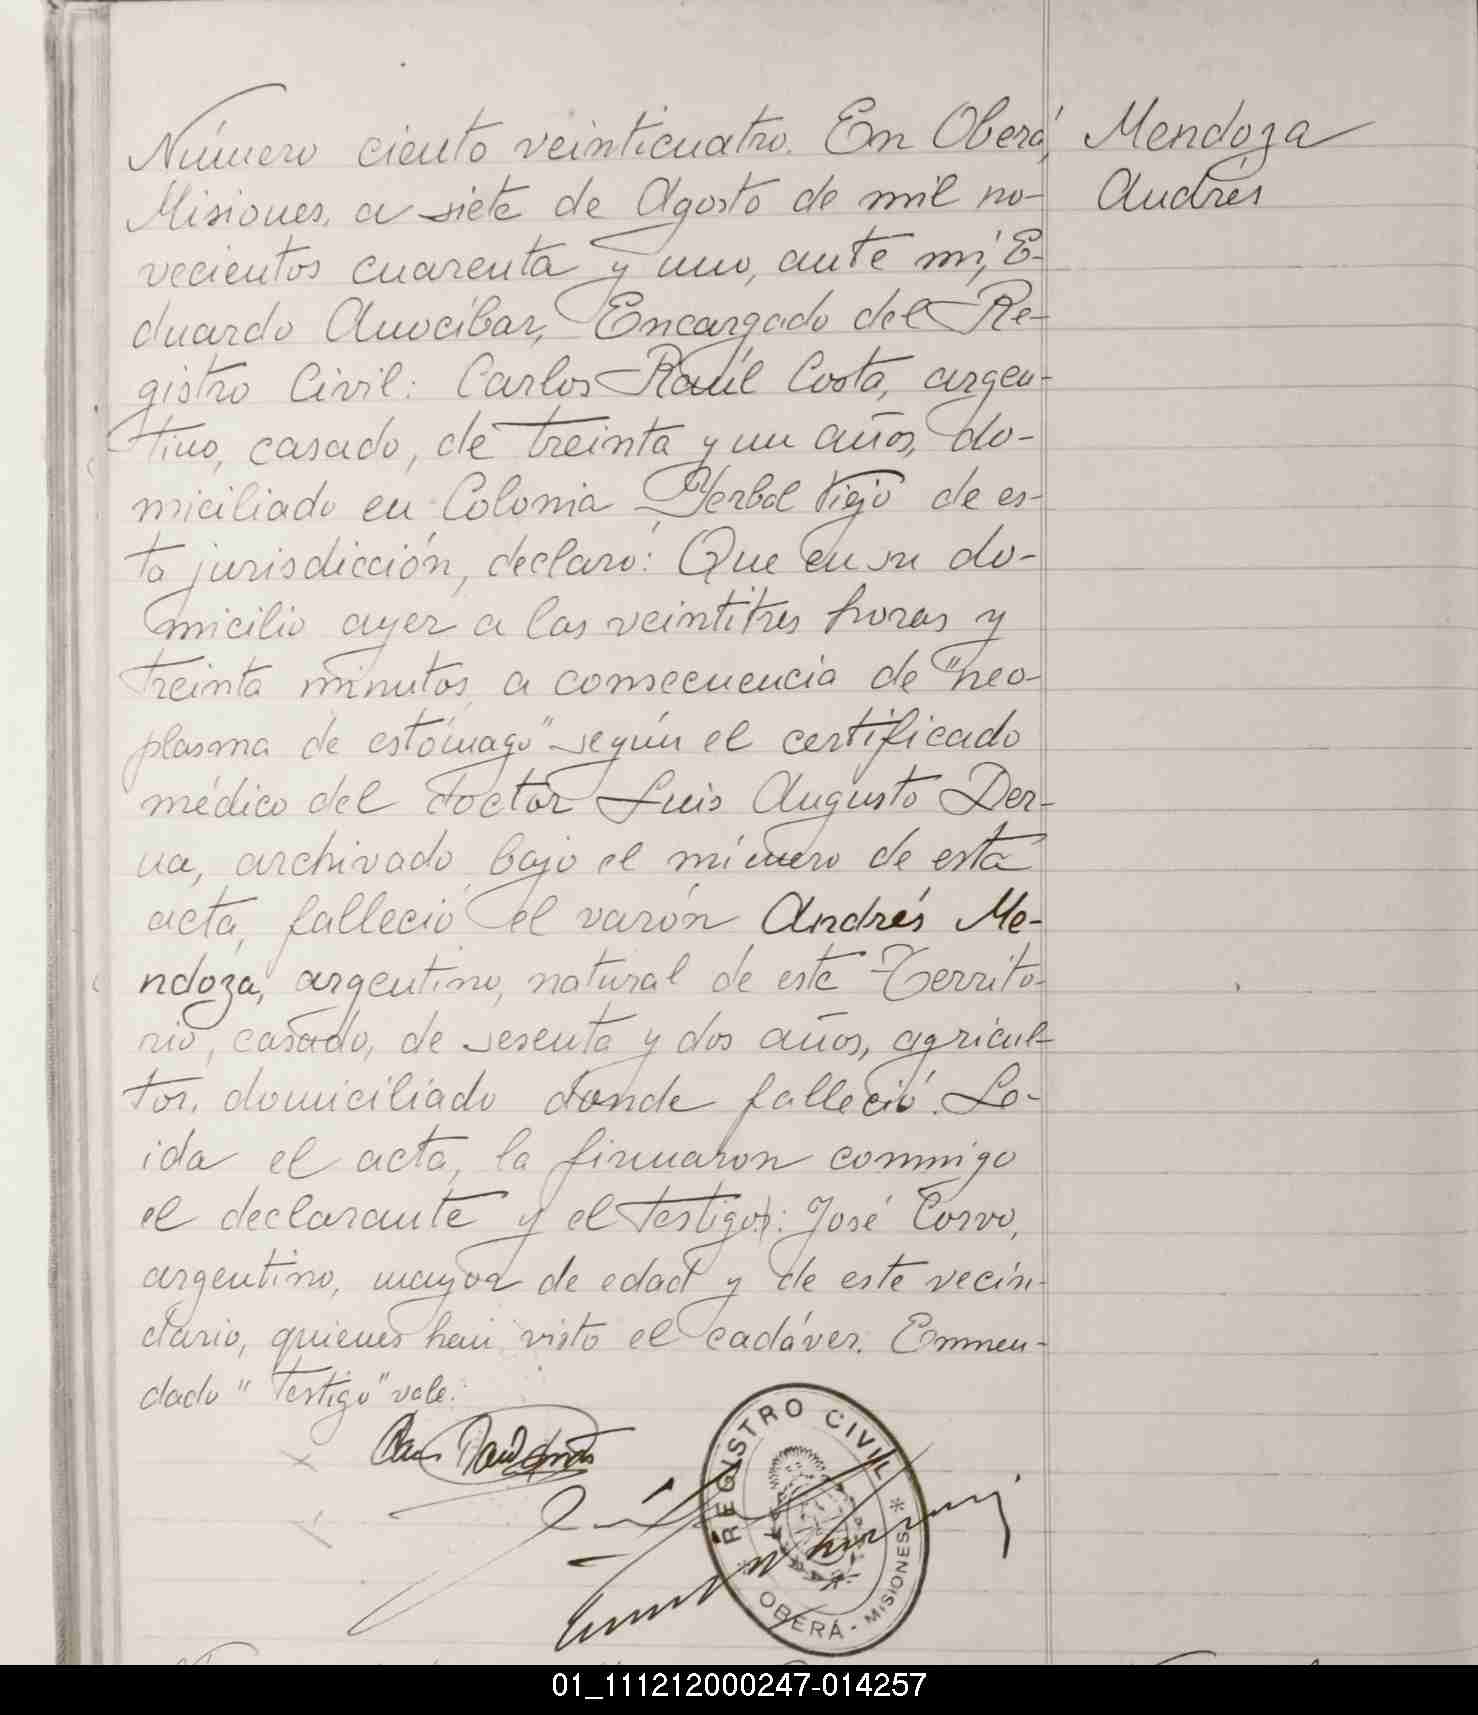 Número ciento veinticuatro. En Oberá,
Misiones, a siete de Agosto de mil no-
vecientos cuarenta y uno, ante mi, E-
duardo Anocíbar, Encargado del Re-
gistro Civil: Carlos Raúl Costa, argen-
tino, casado, de treinta y un años, do-
miciliado en Colonia Yerbal Viejo de es-
ta jurisdicción, declaró: Que en su do-
micilio ayer a las veintitres horas y
treinta minutos, a consecuencia de "neo-
plasma de estómago" según el certificado
médico del doctor Luis Augusto Der-
na, archivado bajo el número de esta
acta, falleció el varón Andrés Me-
ndoza, argentino, natural de este Territo-
rio, casado, de sesenta y dos años, agricul-
tor, domiciliado donde falleció. Le-
ida el acta, la firmaron conmigo
el declarante y el testigo: José Corvo,
argentino, mayor de edad y de este vecin-
dario, quienes han visto el cadáver. Enmen-
dado "testigo" vale.
Mendoza
Andrés
REGISTRO CIVIL
* OBERÁ - MISIONES *
01_111212000247-014257